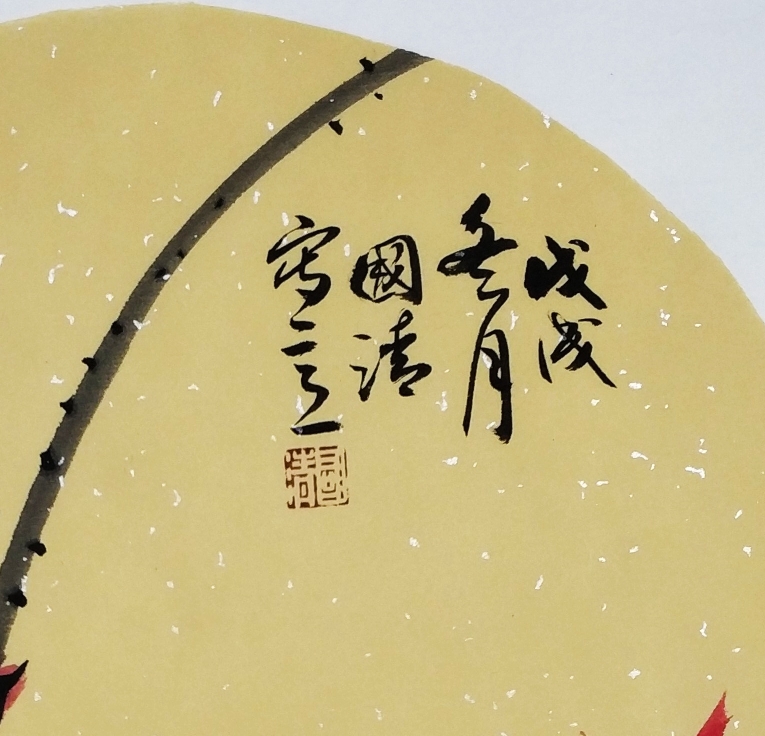 戊戌
冬月
國清
寫意
國清